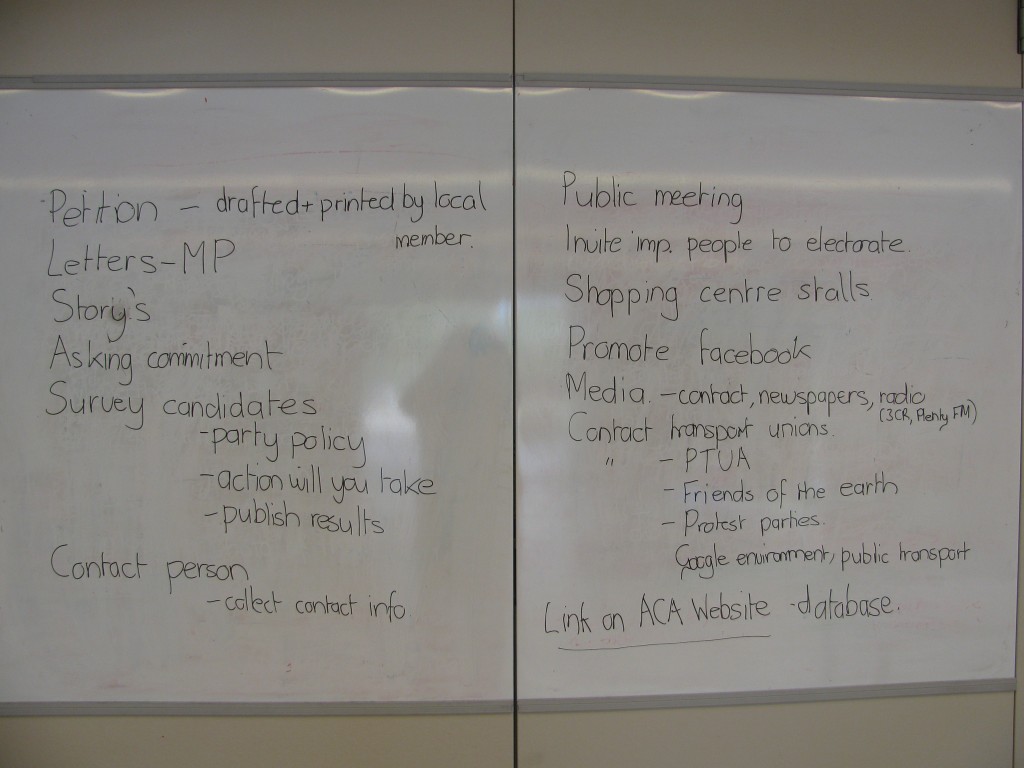 Petition - drafted + printed by local
member.
Letters - MP
Story's
Asking commitment
Survey candidates
- party policy
- action will you take
- publish results
Contact person
- collect contact info
Public meeting
Invite imp. people to electorate.
Shopping centre stalls.
Promote facebook
Media. - contact, newspapers, radio
(3CR, Plenty FM)
Contact transport unions.
" - PTUA
- Friends of the earth
- Protest parties.
Google environment, public transport
Link on ACA Website - database.